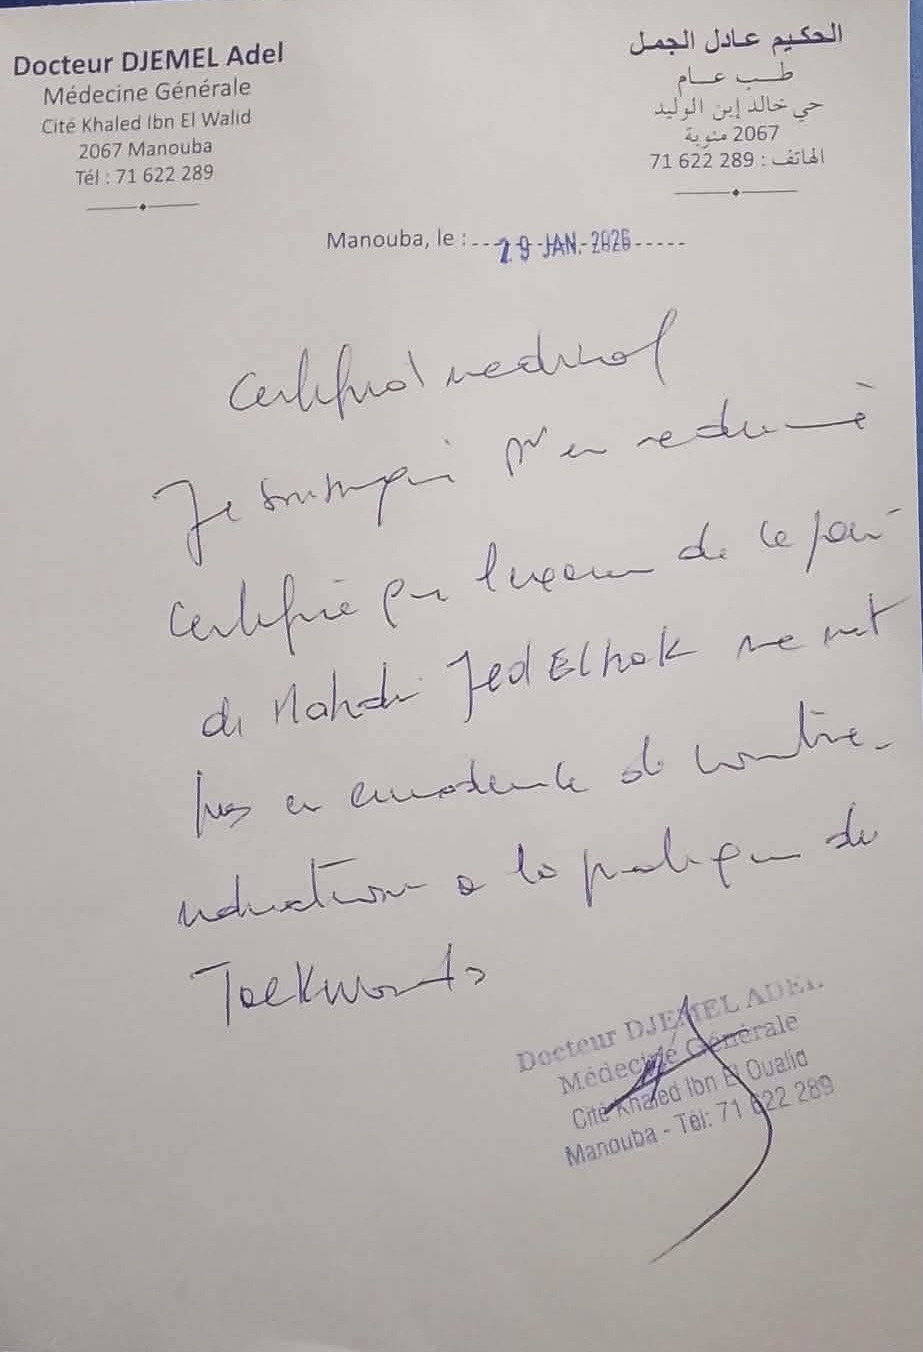 Docteur DJEMEL Adel
Médecine Générale
Cité Khaled Ibn El Walid
2067 Manouba
Tél : 71 622 289
الحكيم عادل الجمل
طب عام
حي خالد إبن الوليد
2067 منوبة
الهاتف : 71 622 289
Manouba, le : 29 JAN. 2026
Certificat medical
Je soussigné Dr en medecine
certifie que l'examen de ce jour
de Mahdi Jed Elhak ne met
pas en evidence de contre-
indication a la pratique du
Taekwondo
Docteur DJEMEL ADEL
Médecine Générale
Cité Khaled Ibn El Oualid
Manouba - Tél: 71 622 289